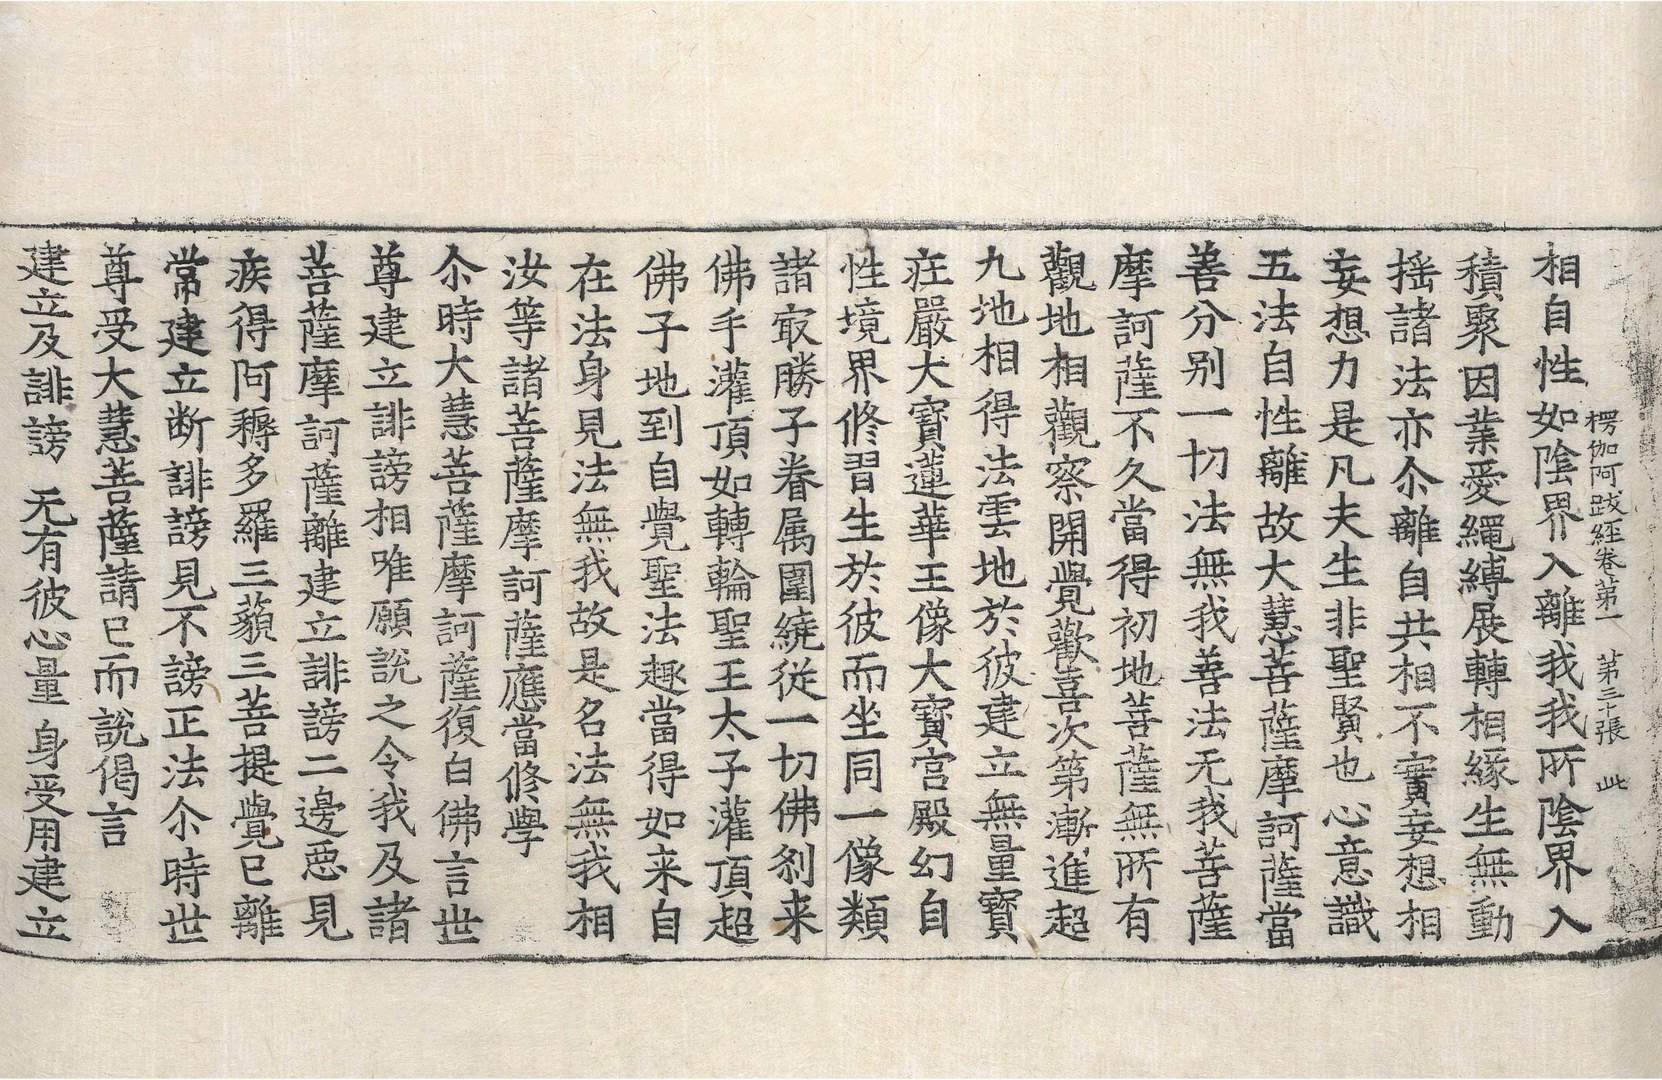 相自性如陰界入離我我所陰界入
楞伽阿跋經卷第一 第三十張 此
積聚因業愛繩縛展轉相緣生無動
揺諸法亦尒離自共相不實妄想相
妄想力是凡夫生非聖賢也心意識
五法自性離故大慧菩薩摩訶薩當
善分別一切法無我善法无我菩薩
摩訶薩不久當得初地菩薩無所有
觀地相觀察開覺歡喜次第漸進超
九地相得法雲地於彼建立無量寶
莊嚴大寶蓮華王像大寶宮殿幻自
性境界修習生於彼而坐同一像類
諸㝡勝子眷属圍繞從一切佛刹来
佛手灌頂如轉輪聖王太子灌頂超
佛子地到自覺聖法趣當得如来自
在法身見法無我故是名法無我相
汝等諸菩薩摩訶薩應當修學
尒時大慧菩薩摩訶薩復白佛言世
尊建立誹謗相唯願說之令我及諸
菩薩摩訶薩離建立誹謗二邊惡見
疾得阿耨多羅三藐三菩提覺已離
常建立断誹謗見不謗正法尒時世
尊受大慧菩薩請已而說偈言
建立及誹謗 无有彼心量 身受用建立